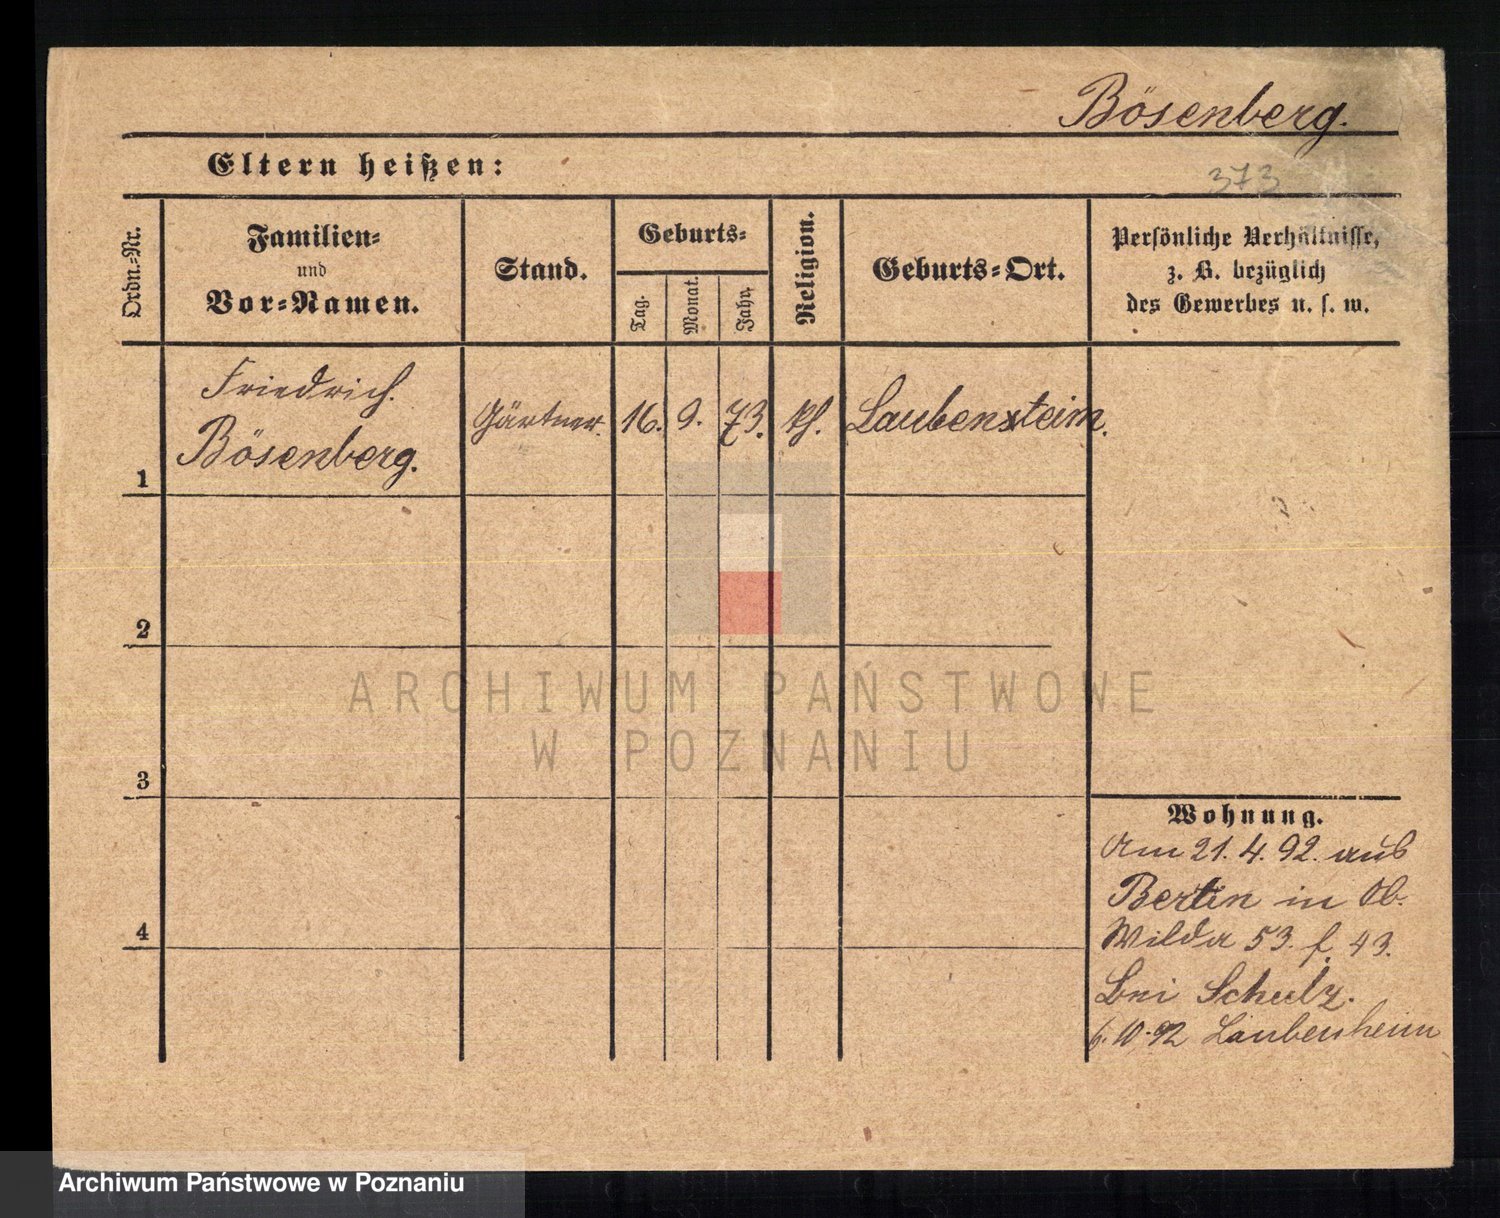 Bösenberg.
Eltern heißen:
373
Ordn.-Nr.
Familien-
und
Vor-Namen.
Stand.
Geburts-
Tag.
Monat.
Jahr.
Religion.
Geburts-Ort.
Persönliche Verhältnisse,
z. B. bezüglich
des Gewerbes u. s. w.
Friedrich.
Bösenberg.
Gärtner.
16.
9.
73.
Laubensteim.
1
2
ARCHIWUM PAŃSTWOWE
W POZNANIU
3
Wohnung.
Am 21. 4. 92. aus
Berlin in Ob.
Wilda 53. f. 43.
bei Schulz.
6. 10. 92 Laubenheim
4
Archiwum Państwowe w Poznaniu